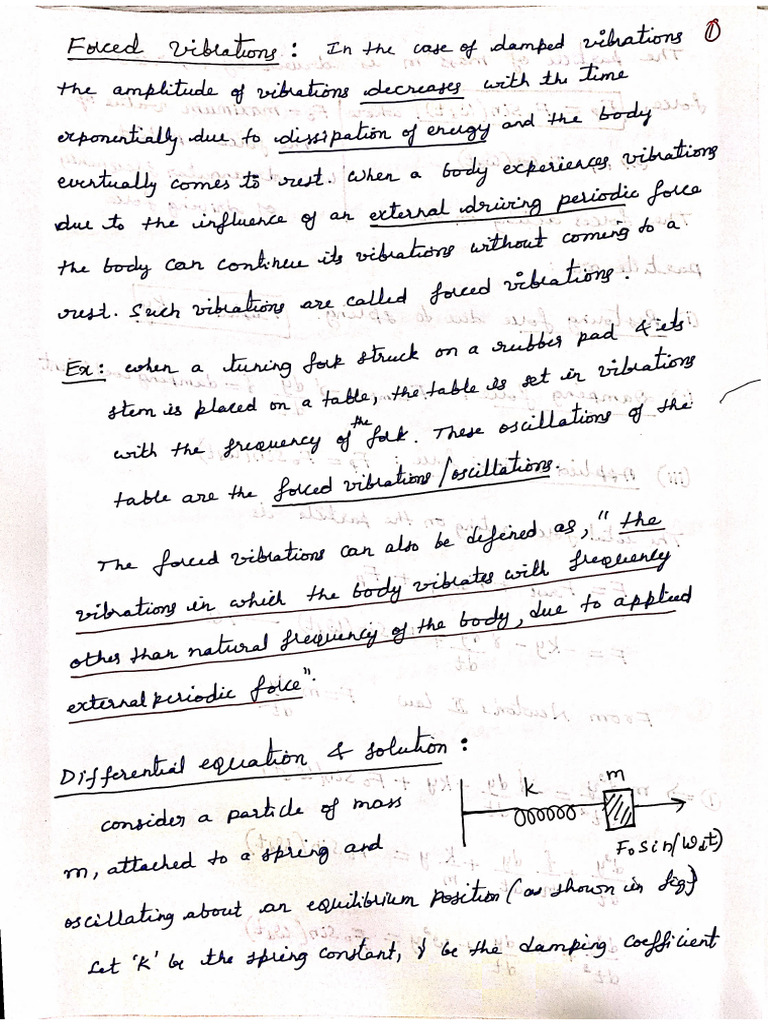 Forced vibrations : In the case of damped vibrations ①
the amplitude of vibrations decreases with the time
exponentially due to dissipation of energy and the body
eventually comes to rest. When a body experiences vibrations
due to the influence of an external driving periodic force
the body can continue its vibrations without coming to a
rest. Such vibrations are called forced vibrations.
Ex: when a tuning fork struck on a rubber pad & its
stem is placed on a table, the table is set in vibrations
with the frequency of the fork. These oscillations of the
table are the forced vibrations / oscillations.
The forced vibrations can also be defined as, "the
vibrations in which the body vibrates with frequency
other than natural frequency of the body, due to applied
external periodic force".
Differential equation & solution :
consider a particle of mass
m, attached to a spring and
K
m
F₀ sin(ωdt)
oscillating about an equilibrium position (as shown in fig)
Let 'K' be the spring constant, γ be the damping coefficient